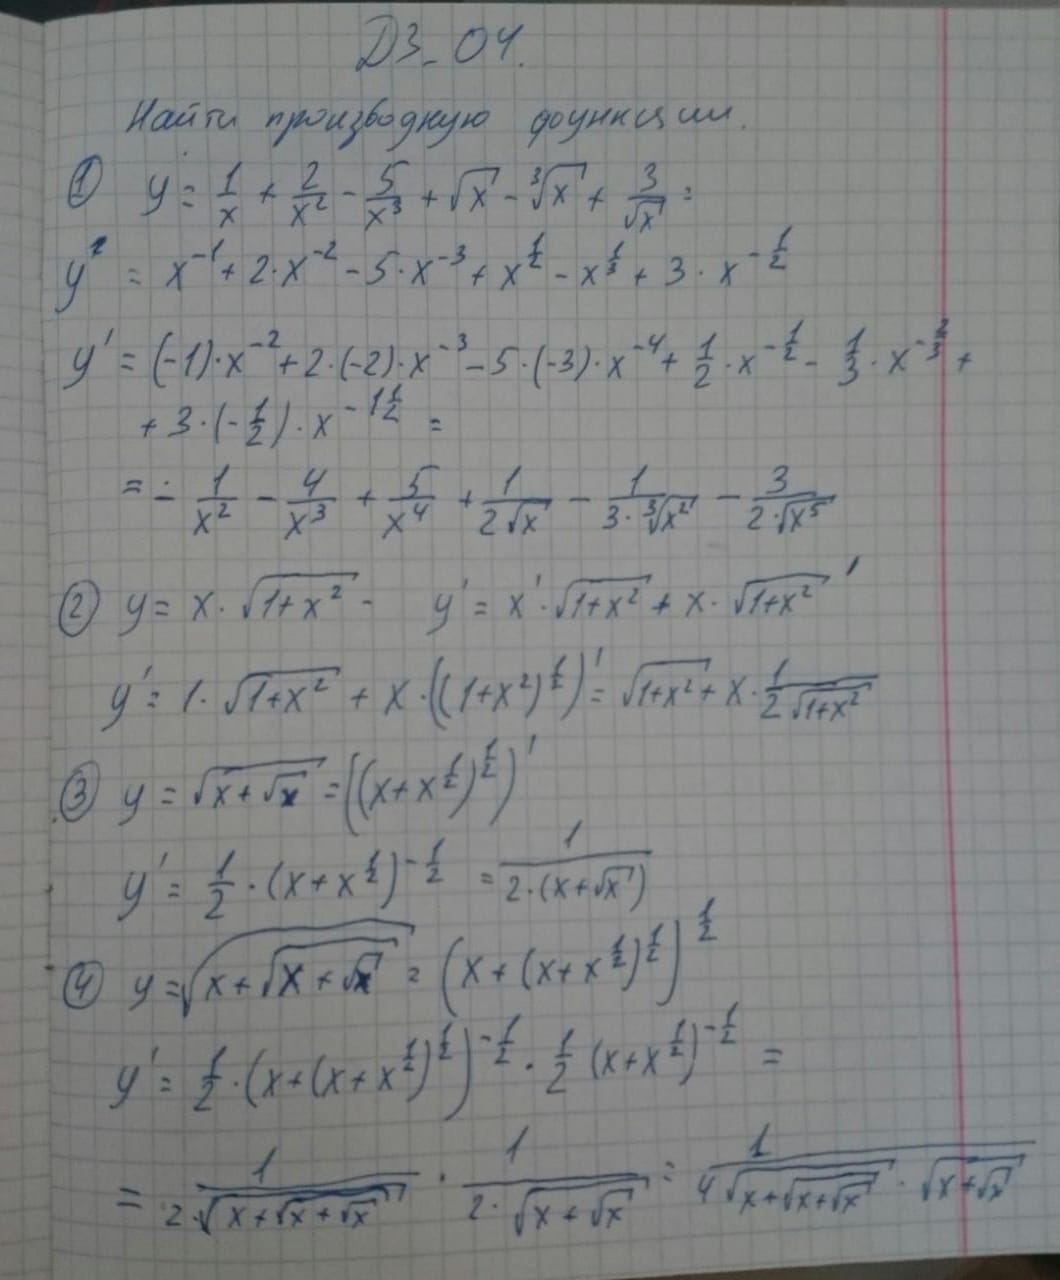 ДЗ-04.
Найти производную функции.
① y = 1/x + 2/x² - 5/x³ + √x - ³√x + 3/√x =
y = x⁻¹ + 2·x⁻² - 5·x⁻³ + x^(1/2) - x^(1/3) + 3·x^(-1/2)
y' = (-1)·x⁻² + 2·(-2)·x⁻³ - 5·(-3)·x⁻⁴ + 1/2·x^(-1/2) - 1/3·x^(-2/3) +
+ 3·(-1/2)·x^(-1 1/2) =
= - 1/x² - 4/x³ + 5/x⁴ + 1/(2√x) - 1/(3·³√x²) - 3/(2·√x⁵)
② y = x·√(1+x²) - y' = x'·√(1+x²) + x·√(1+x²)'
y' = 1·√(1+x²) + x·((1+x²)^(1/2))' = √(1+x²) + x·1/(2√(1+x²))
③ y = √(x+√x) = ((x+x^(1/2))^(1/2))'
y' = 1/2·(x+x^(1/2))^(-1/2) = 1/(2·(x+√x))
④ y = √(x+√(x+√x)) = (x+(x+x^(1/2))^(1/2))^(1/2)
y' = 1/2·(x+(x+x^(1/2))^(1/2))^(-1/2) · 1/2 (x+x^(1/2))^(-1/2) =
= 1/(2·√(x+√(x+√x))) · 1/(2·√(x+√x)) = 1/(4√(x+√(x+√x))·√(x+√x))